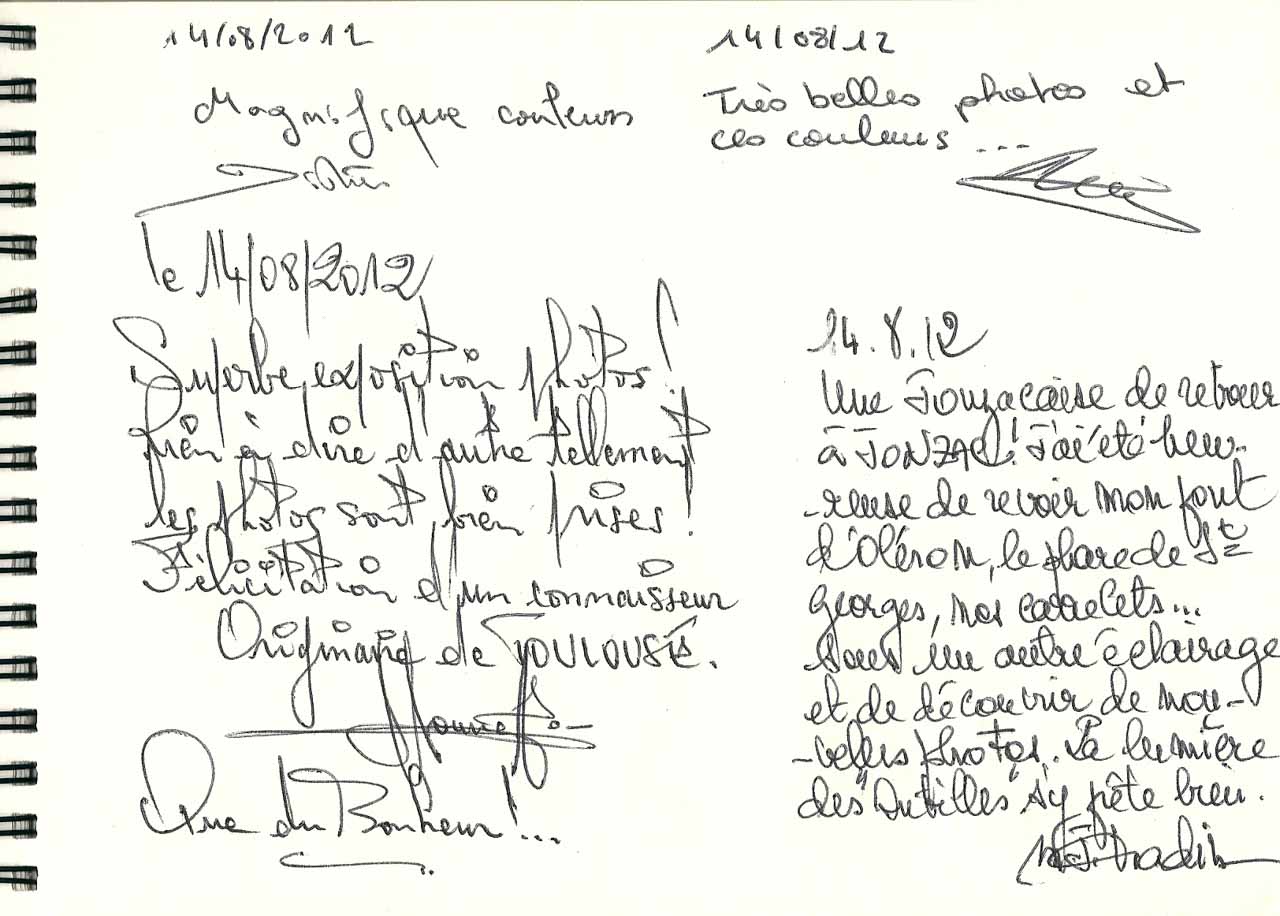 14/08/2012
Magnifique couleurs
14/08/12
Très belles photos et
ces couleurs ...
le 14/08/2012
Superbe exposition photos !
Rien à dire d'autre tellement
les photos sont bien prises !
Félicitation d'un connaisseur
Originaire de TOULOUSE.
Que du Bonheur !...
14.8.12
Une Jonzacaise de retour
à JONZAC ! J'ai été heu-
-reuse de revoir mon
d'Oléron, le phare de St
Georges, nos carrelets...
sous un autre éclairage
et de découvrir de nou-
-velles photos. La lumière
des "Antilles" s'y prête bien.